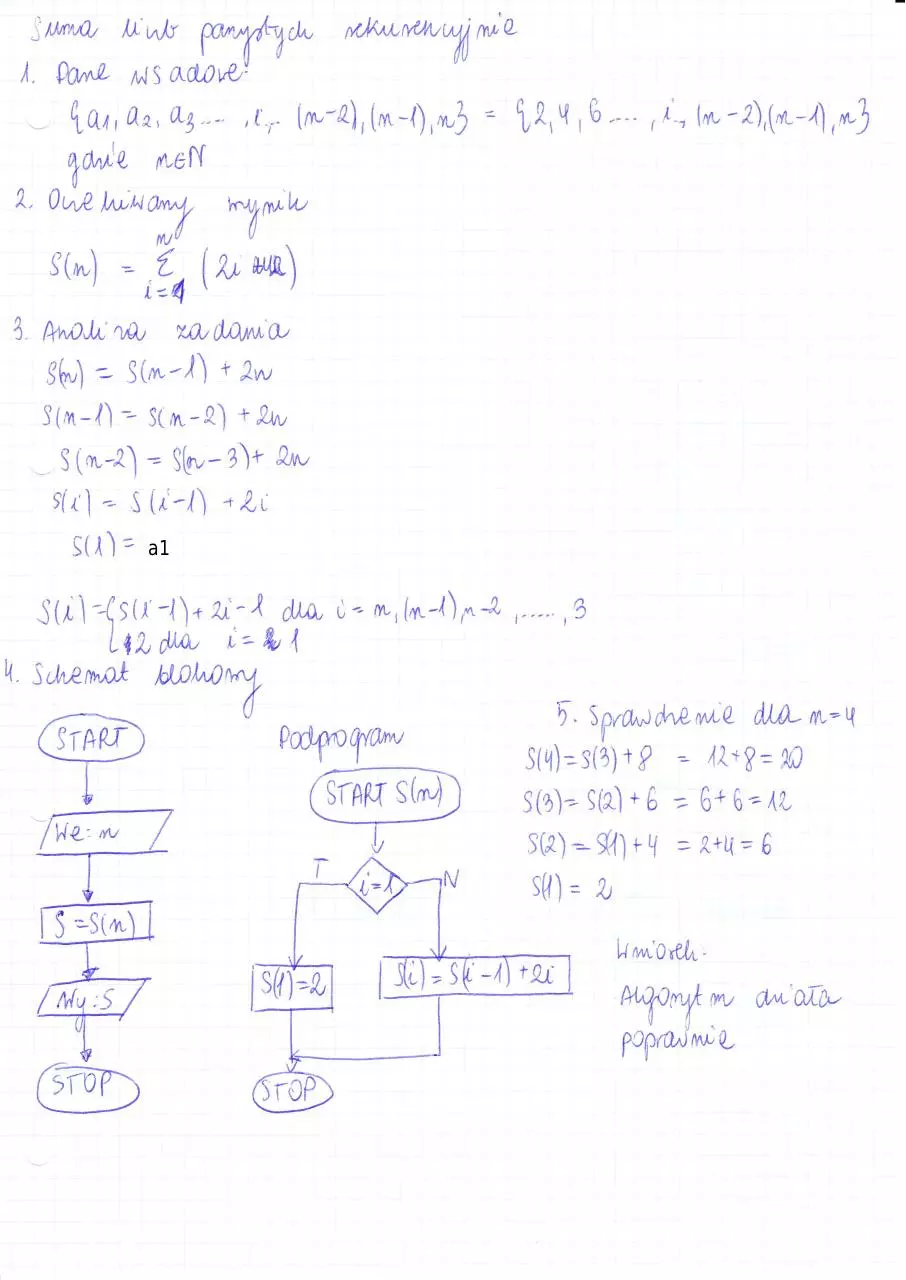 Suma liczb parzystych rekurencyjnie
1. Dane wsadowe:
{a1, a2, a3 ...., i,.. (n-2), (n-1), n} = {2, 4, 6 ...., i.., (n-2), (n-1), n}
gdzie n∈N
2. Oczekiwany wynik
n
S(n) = Σ (2i)
i=1
3. Analiza zadania
S(n) = S(n-1) + 2n
S(n-1) = S(n-2) + 2n
S(n-2) = S(n-3) + 2n
S(i) = S(i-1) + 2i
S(1) = a1
S(i) = { S(i-1) + 2i-1 dla i = n, (n-1), n-2, ....., 3
2 dla i = 1
4. Schemat blokowy
START
We: n
S = S(n)
Wy: S
STOP
Podprogram
START S(n)
T i=1 N
S(1)=2
S(i) = S(i-1) + 2i
STOP
5. Sprawdzenie dla n=4
S(4) = S(3) + 8 = 12+8 = 20
S(3) = S(2) + 6 = 6+6 = 12
S(2) = S(1) + 4 = 2+4 = 6
S(1) = 2
Wniosek:
Algorytm działa
poprawnie